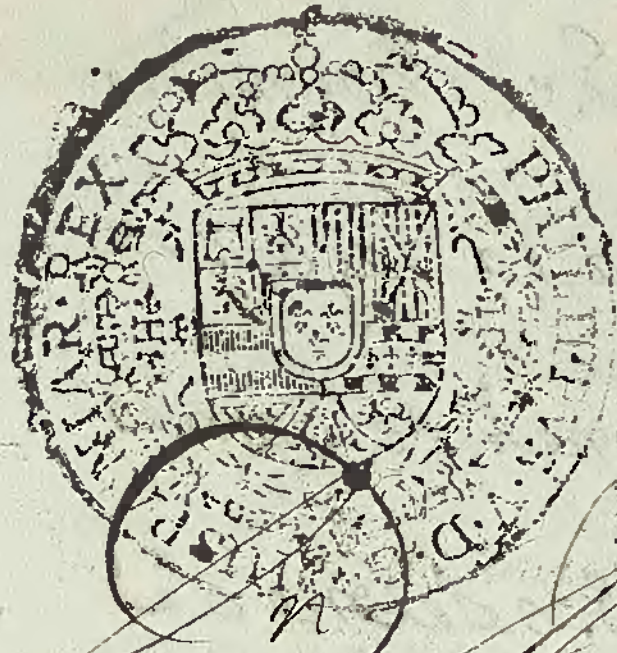 PHILIP·V·D·G·HISPANIAR·REX